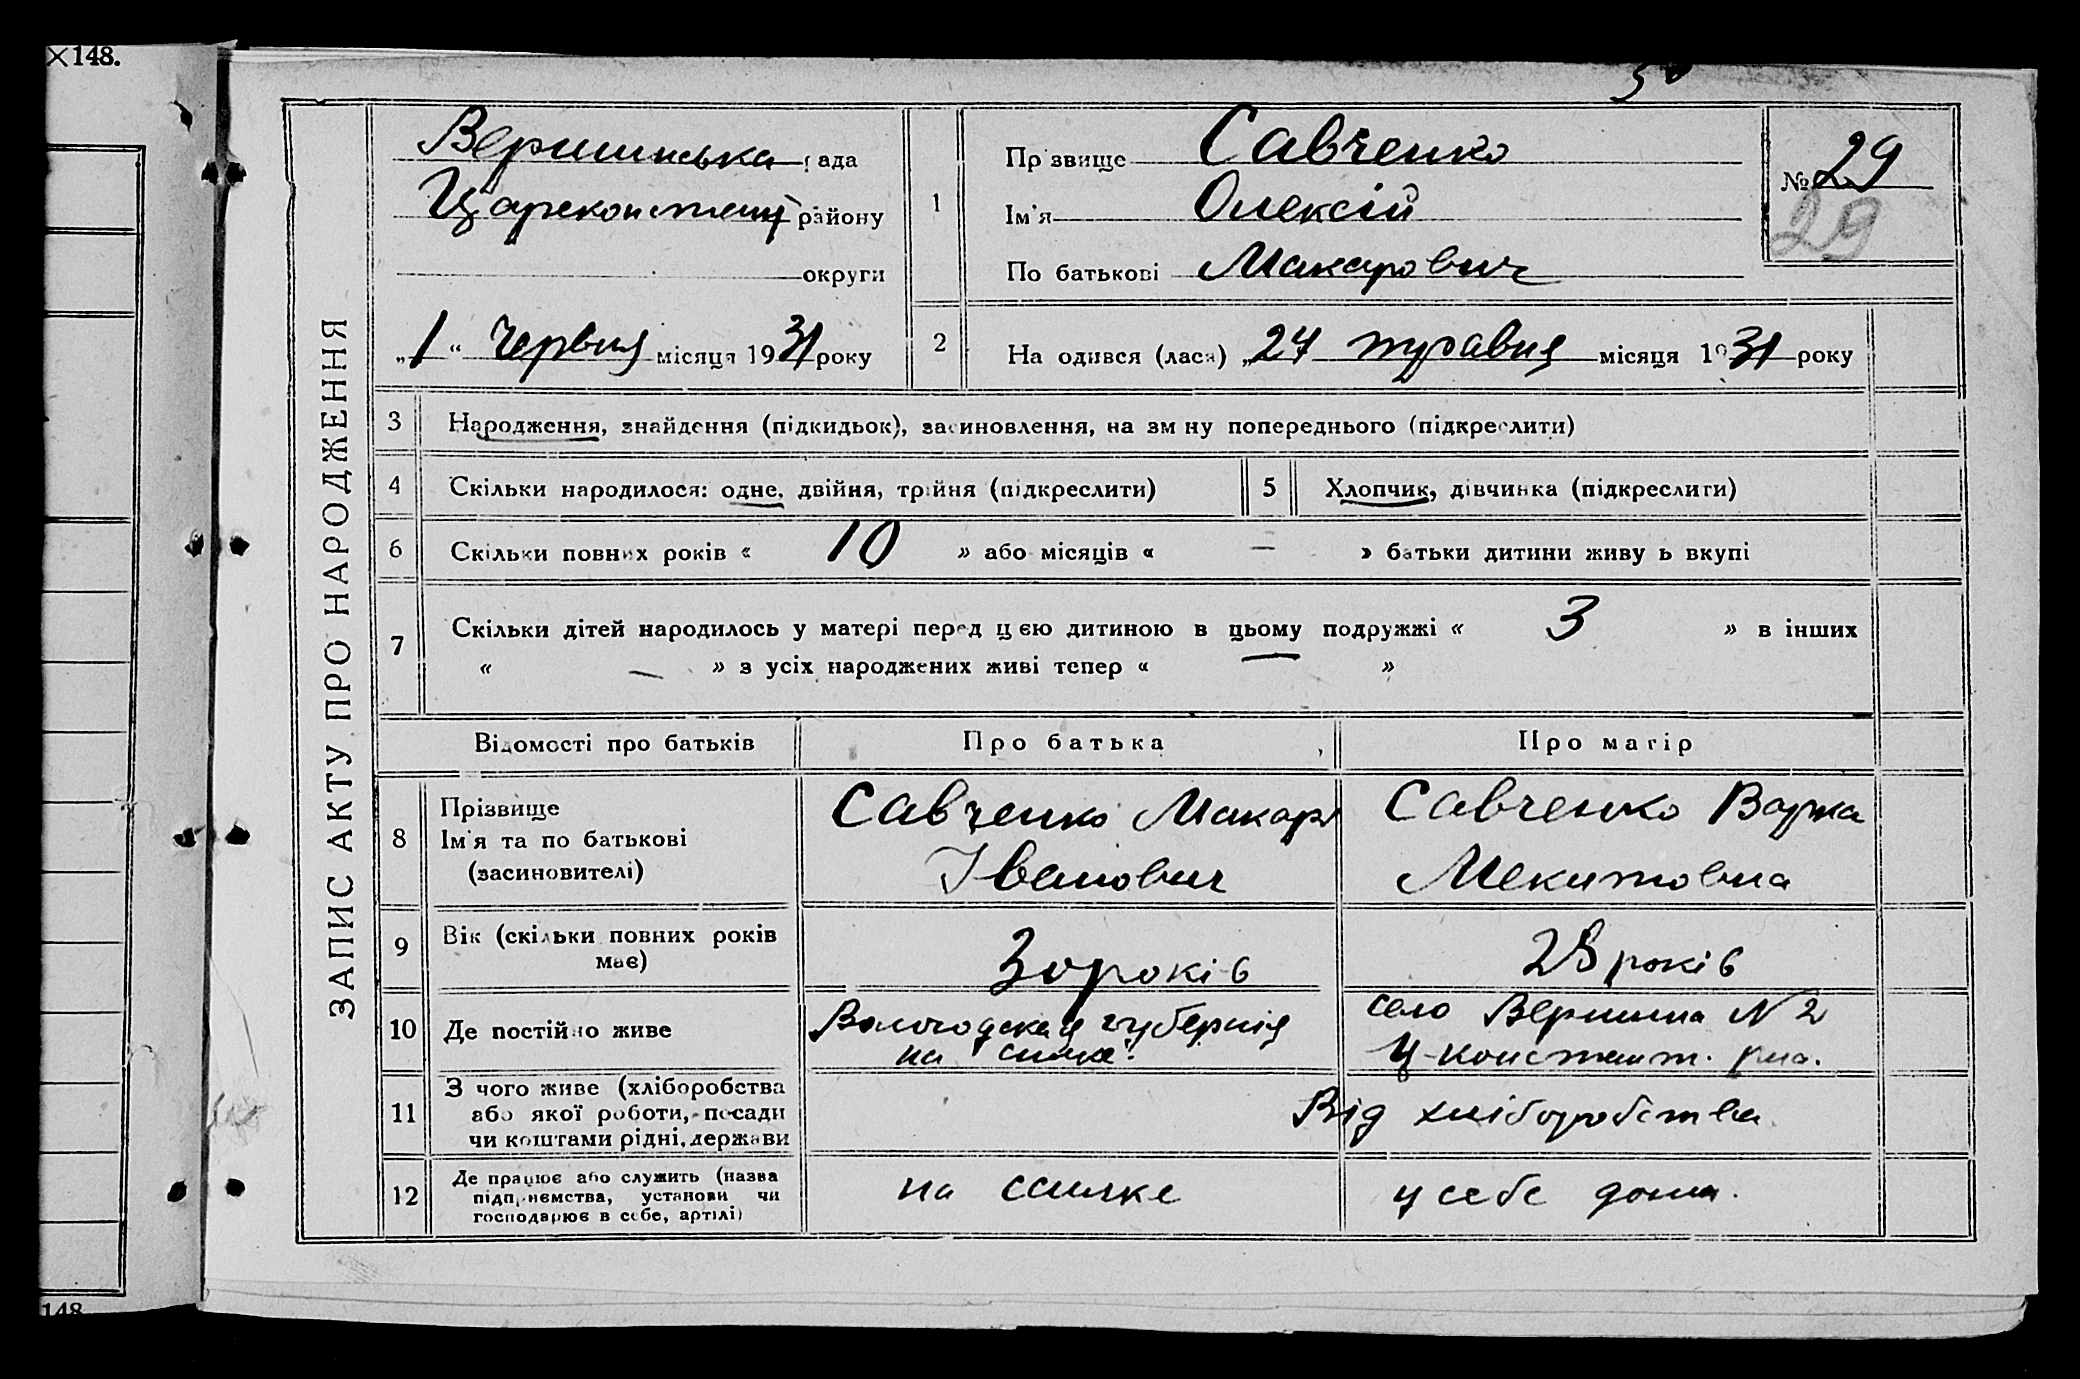 ×148.
ЗАПИС АКТУ ПРО НАРОДЖЕННЯ
Вершинська рада
Цареконстант району
округи
„1“ червня місяця 1931 року
1
Прізвище Савченко
Ім'я Олексій
По батькові Макарович
№ 29
29
2
Народився (лася) „24 травня місяця 1931 року
3 Народження, знайдення (підкидьок), засиновлення, на зміну попереднього (підкреслити)
4 Скільки народилося: одне, двійня, трійня (підкреслити)
5 Хлопчик, дівчинка (підкреслити)
6 Скільки повних років « 10 » або місяців « — » батьки дитини живуть вкупі
7 Скільки дітей народилось у матері перед цією дитиною в цьому подружжі « 3 » в інших
« — » з усіх народжених живі тепер « — »
Відомості про батьків
Про батька
Про матір
8 Прізвище
Ім'я та по батькові
(засиновителі)
Савченко Макар
Іванович
Савченко Варка
Мекитовна
9 Вік (скільки повних років
має)
30 років
28 років
10 Де постійно живе
Вологодская губернія
на силке.
село Вершина N 2
Ц-констант. рна.
11 З чого живе (хліборобства
або якої роботи, посади
чи коштами рідні, держави
Від хліборобства
12 Де працює або служить (назва
підприємства, установи чи
господарює в себе, артілі)
на ссилке
у себе дома.
148